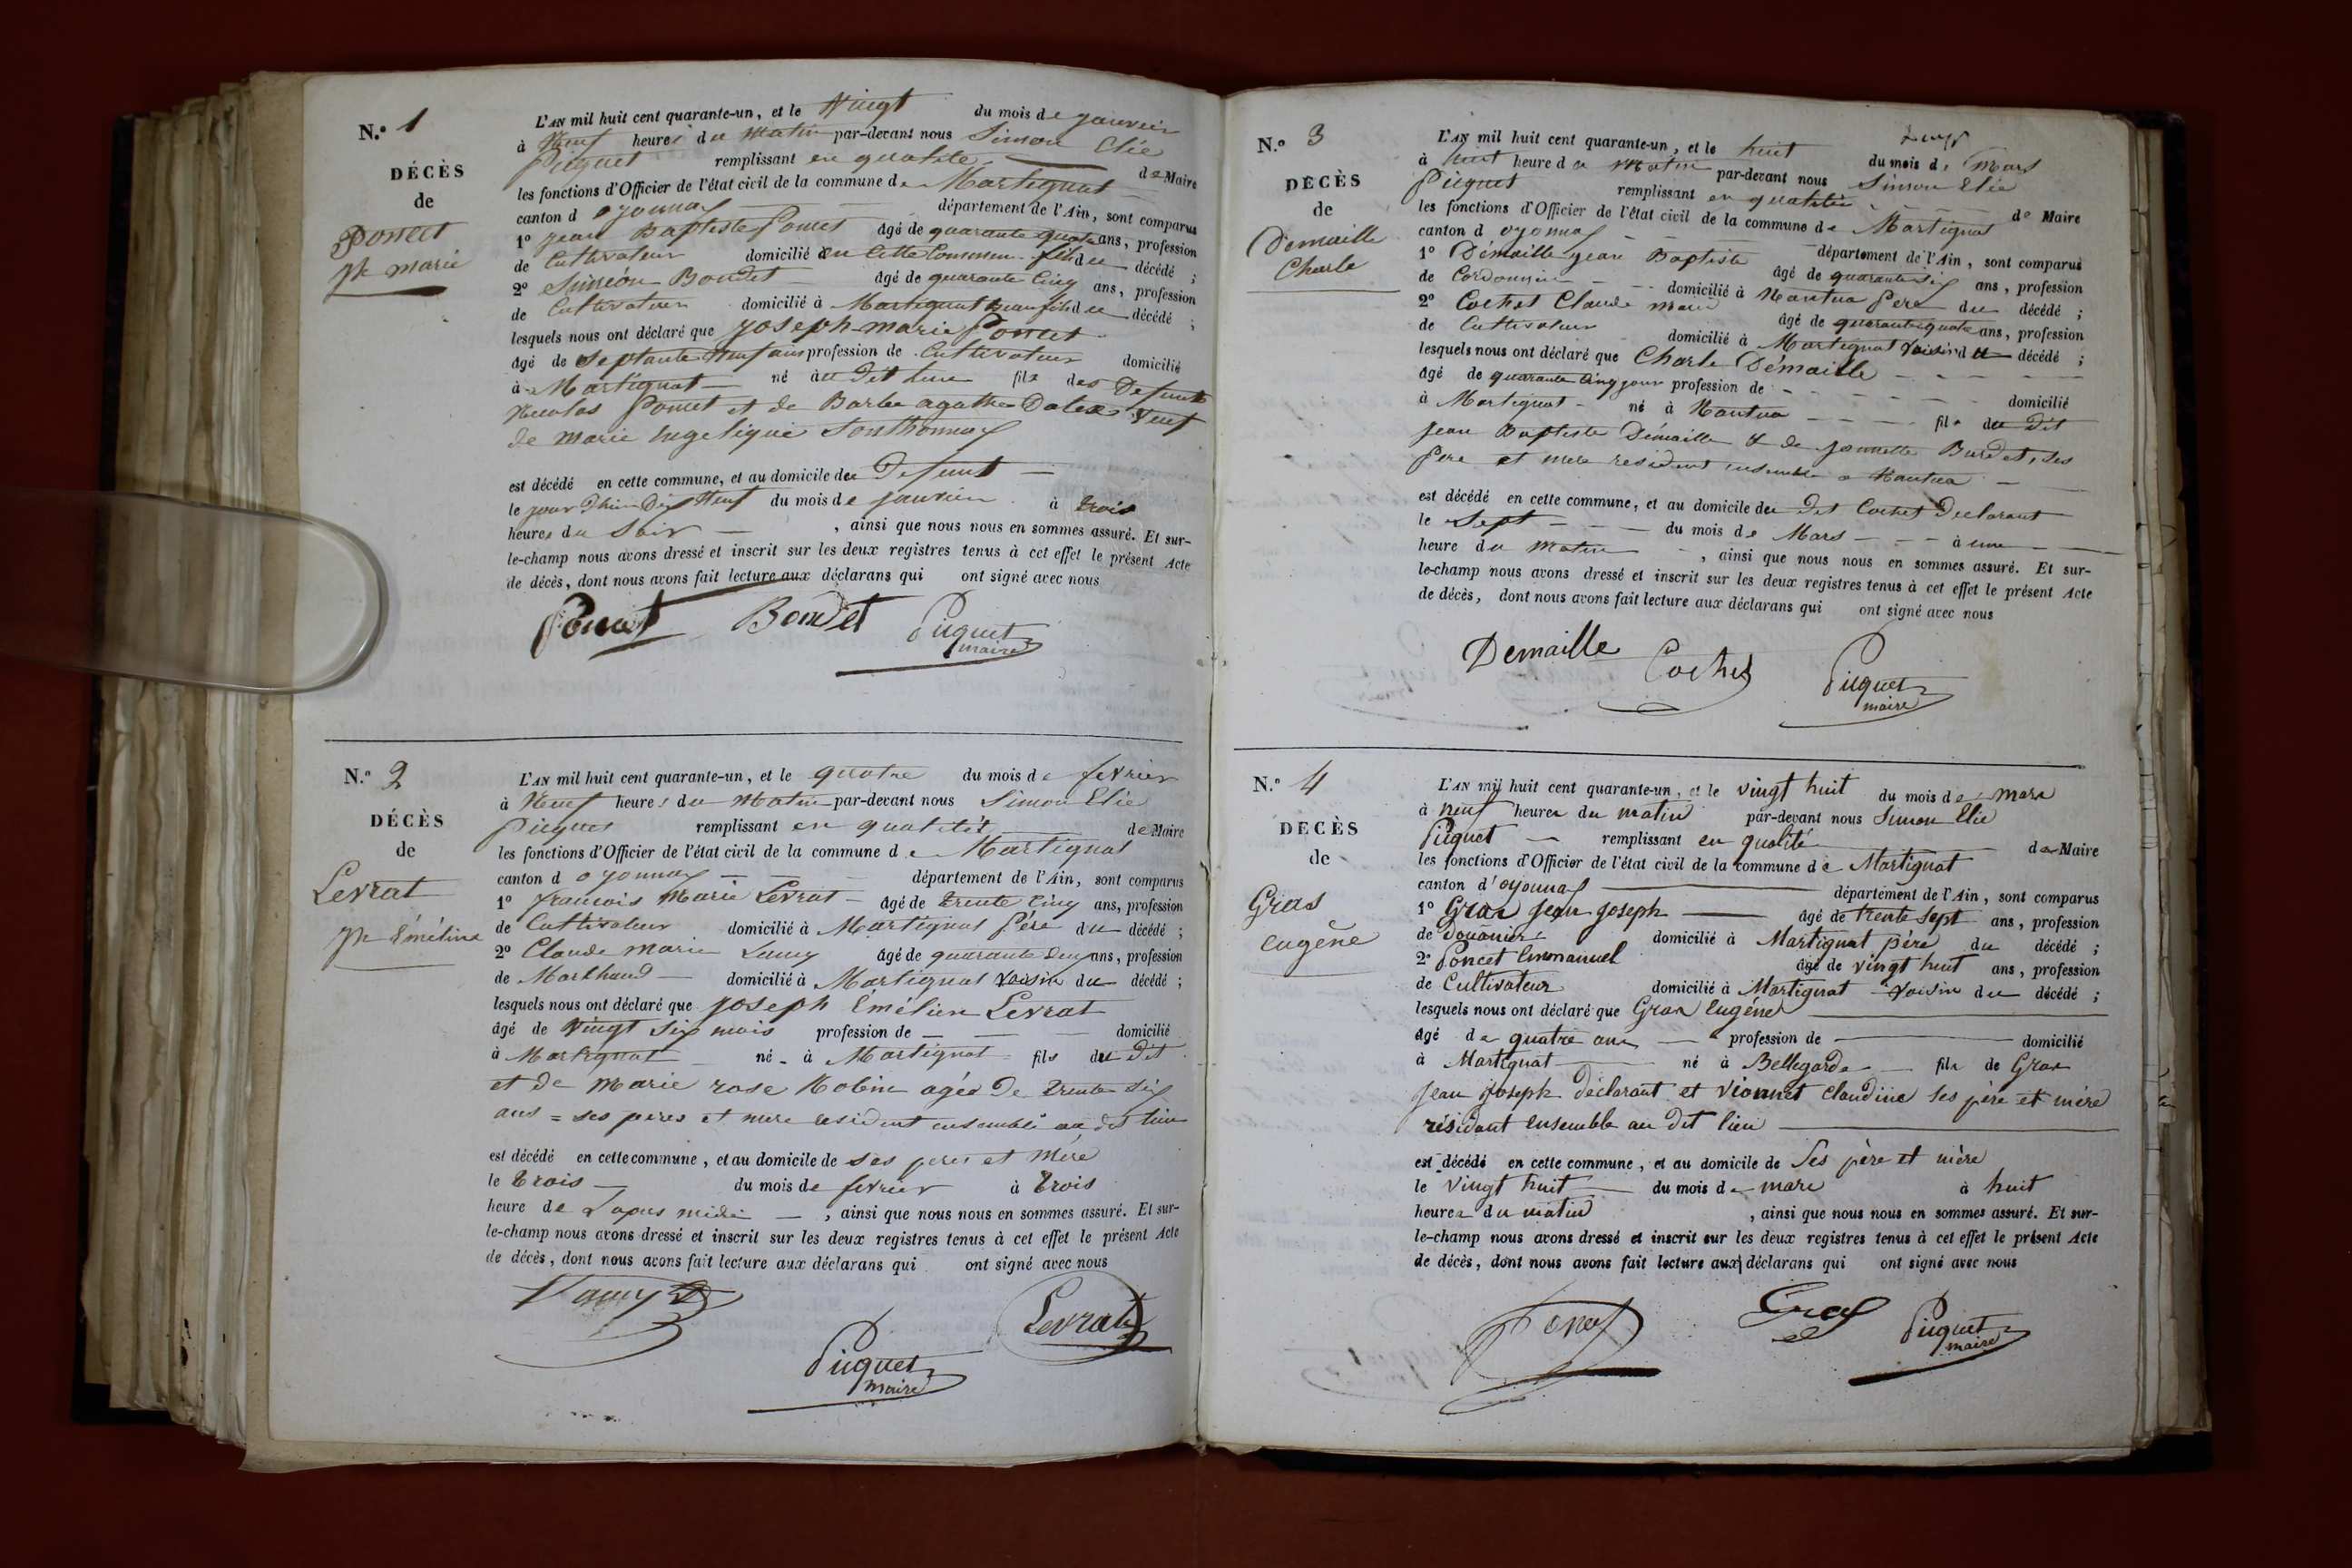 N.o 1
DÉCÈS
de
Poncet
Jh marie
L'AN mil huit cent quarante-un, et le Vingt du mois de janvier
à Neuf heures du matin par-devant nous Simon Elie
Picquet remplissant en qualité de Maire
les fonctions d'Officier de l'état civil de la commune de Martignat
canton d oyonnax département de l'Ain, sont comparus
1o jean Baptiste Poncet âgé de quarante quatre ans, profession
de Cultivateur domicilié en Cette Commune fils du décédé ;
2o Siméon Bondet âgé de quarante Cinq ans, profession
de Cultivateur domicilié à Martignat beaufils du décédé ;
lesquels nous ont déclaré que joseph-marie Poncet
âgé de Septante Neuf ans profession de Cultivateur domicilié
à Martignat né au dit lieu fils des Defunts
Nicolas Poncet et de Barbe agathe Dalex Veuf
de marie Angelique Sonthonnax
est décédé en cette commune, et au domicile du Defunt
le jour Dhier Dix Neuf du mois de janvier à trois
heures du Soir , ainsi que nous nous en sommes assuré. Et sur-
le-champ nous avons dressé et inscrit sur les deux registres tenus à cet effet le présent Acte
de décès, dont nous avons fait lecture aux déclarans qui ont signé avec nous
Poncet Bondet Picquet
maire
N.o 2
DÉCÈS
de
Levrat
Jh Émélien
L'AN mil huit cent quarante-un, et le quatre du mois de fevrier
à Neuf heures du Matin par-devant nous Simon Elie
Picquet remplissant en qualité de Maire
les fonctions d'Officier de l'état civil de la commune de Martignat
canton d oyonnax département de l'Ain, sont comparus
1o francois Marie Levrat âgé de trente Cinq ans, profession
de Cultivateur domicilié à Martignat Père du décédé ;
2o Claude Marie âgé de quarante deux ans, profession
de Marchand domicilié à Martignat voisin du décédé ;
lesquels nous ont déclaré que joseph Émélien Levrat
âgé de Vingt Six mois profession de domicilié
à Martignat né à Martignat fils du dit
et de Marie rose Robin agée De trente Six
ans = ses peres et mere resident ensemble au dit lieu
est décédé en cette commune, et au domicile de ses peres et Mere
le trois du mois de fevrier à trois
heure de Lapres midi , ainsi que nous nous en sommes assuré. Et sur-
le-champ nous avons dressé et inscrit sur les deux registres tenus à cet effet le présent Acte
de décès, dont nous avons fait lecture aux déclarans qui ont signé avec nous
Levrat
Picquet
maire
N.o 3
DÉCÈS
de
Demaille
Charle
L'AN mil huit cent quarante-un, et le huit du mois de Mars
à huit heure du Matin par-devant nous Simon Elie
Picquet remplissant en qualité de Maire
les fonctions d'Officier de l'état civil de la commune de Martignat
canton d oyonnax département de l'Ain, sont comparus
1o Démaille jean Baptiste âgé de quarante six ans, profession
de Cordonnier domicilié à Nantua Pere du décédé ;
2o Cochet Claude marie âgé de quarante quatre ans, profession
de Cultivateur domicilié à Martignat Voisin du décédé ;
lesquels nous ont déclaré que Charle Démaille
âgé de quarante Cinq jour profession de domicilié
à Martignat né à Nantua fils du dit
jean Baptiste Démaille & de jeannette Burdet, ses
Pere et mere resident ensemble a Nantua
est décédé en cette commune, et au domicile du dit Cochet Declarant
le Sept du mois de Mars à une
heure du matin , ainsi que nous nous en sommes assuré. Et sur-
le-champ nous avons dressé et inscrit sur les deux registres tenus à cet effet le présent Acte
de décès, dont nous avons fait lecture aux déclarans qui ont signé avec nous
Demaille Cochet Picquet
maire
N.o 4
DÉCÈS
de
Gras
eugène
L'AN mil huit cent quarante-un, et le vingt huit du mois de mars
à neuf heures du matin par-devant nous Simon Elie
Picquet remplissant en qualité de Maire
les fonctions d'Officier de l'état civil de la commune de Martignat
canton d'oyonnax département de l'Ain, sont comparus
1o Gras jean joseph âgé de trente sept ans, profession
de Douanier domicilié à Martignat père du décédé ;
2o Poncet Emmanuel âgé de vingt huit ans, profession
de Cultivateur domicilié à Martignat Voisin du décédé ;
lesquels nous ont déclaré que Gras Eugéne
âgé de quatre ans profession de domicilié
à Martignat né à Bellegarde fils de Gras
jean joseph déclarant et Vionnet Claudine ses père et mère
résidant ensemble au dit lieu
est décédé en cette commune, et au domicile de Ses père et mère
le vingt huit du mois de mars à huit
heures du matin , ainsi que nous nous en sommes assuré. Et sur-
le-champ nous avons dressé et inscrit sur les deux registres tenus à cet effet le présent Acte
de décès, dont nous avons fait lecture aux déclarans qui ont signé avec nous
Gras Picquet
maire